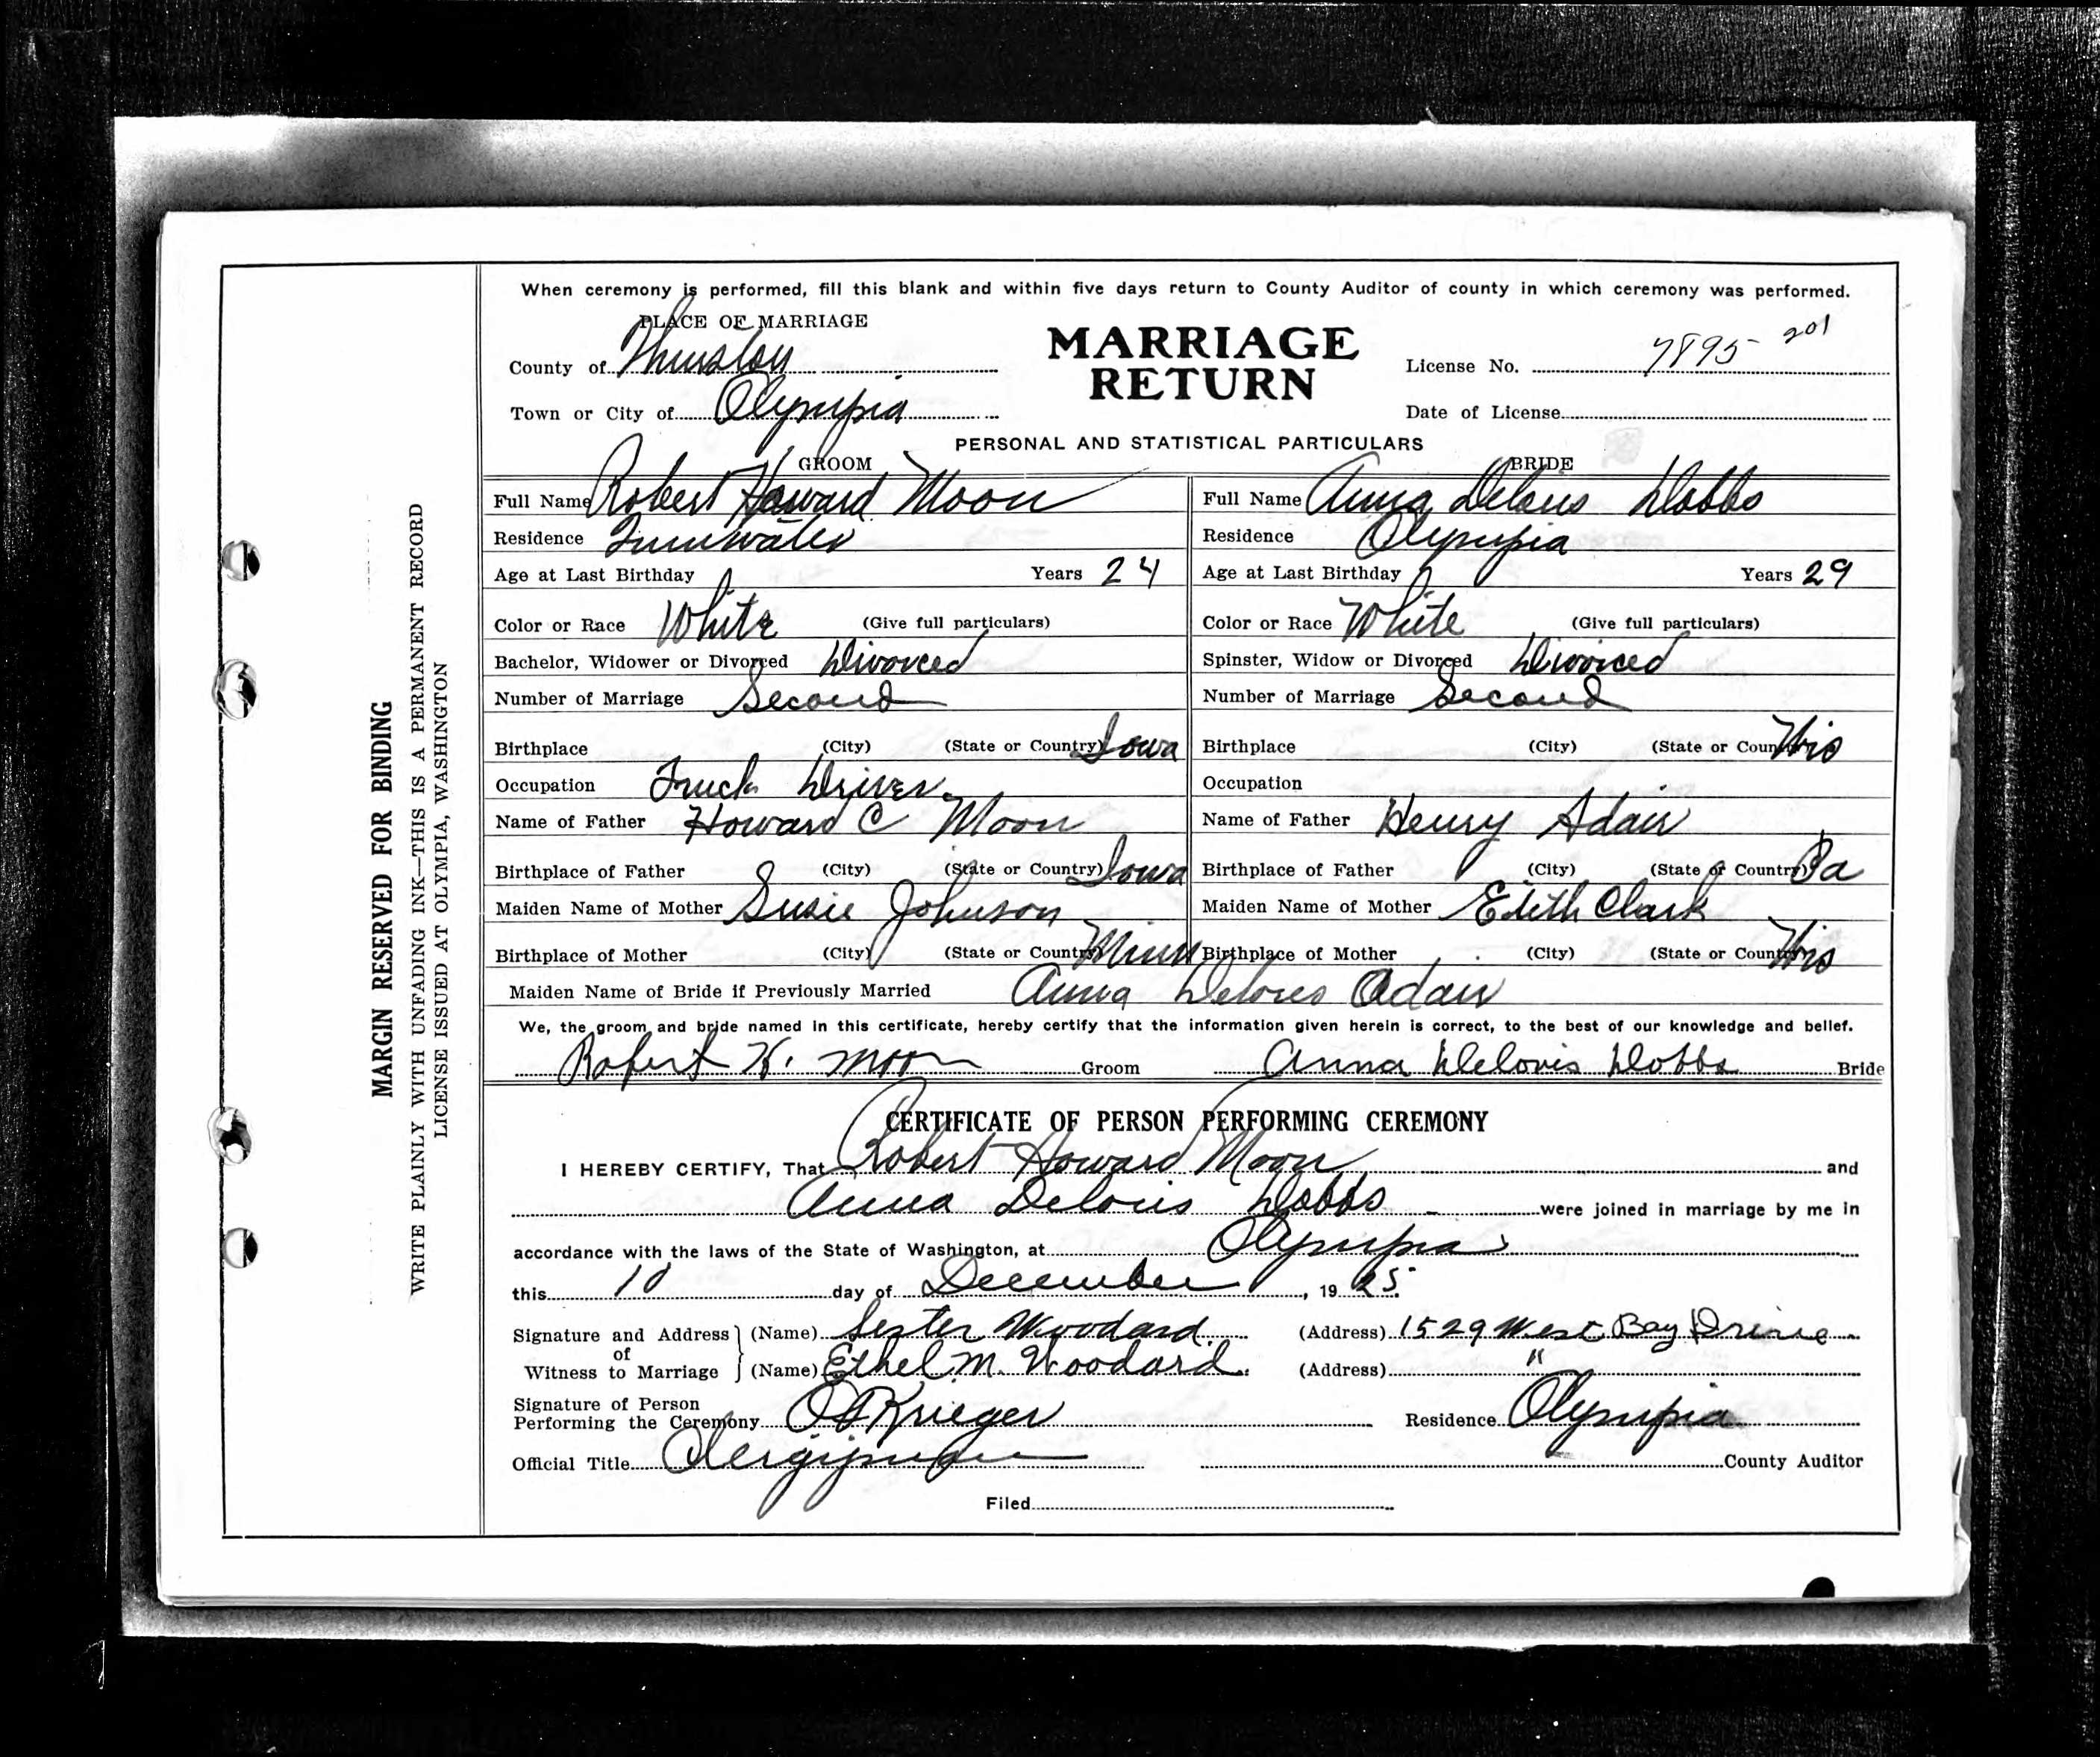 When ceremony is performed, fill this blank and within five days return to County Auditor of county in which ceremony was performed.
PLACE OF MARRIAGE
MARRIAGE RETURN
County of Thurston
License No. 7895 201
Town or City of Olympia
Date of License
PERSONAL AND STATISTICAL PARTICULARS
GROOM
BRIDE
Full Name Robert Howard Moon
Full Name Anna Delors Dobbs
Residence Tumwater
Residence Olympia
Age at Last Birthday Years 24
Age at Last Birthday Years 29
Color or Race White (Give full particulars)
Color or Race White (Give full particulars)
Bachelor, Widower or Divorced Divorced
Spinster, Widow or Divorced Divorced
Number of Marriage Second
Number of Marriage Second
Birthplace (City) (State or Country) Iowa
Birthplace (City) (State or Country) Wis
Occupation Truck Driver
Occupation
Name of Father Howard C Moon
Name of Father Henry Adair
Birthplace of Father (City) (State or Country) Iowa
Birthplace of Father (City) (State or Country) Pa
Maiden Name of Mother Susie Johnson
Maiden Name of Mother Edith Clark
Birthplace of Mother (City) (State or Country) Minn
Birthplace of Mother (City) (State or Country) Wis
Maiden Name of Bride if Previously Married Anna Delores Adair
We, the groom and bride named in this certificate, hereby certify that the information given herein is correct, to the best of our knowledge and belief.
Robert H. Moon Groom Anna Deloris Dobbs Bride
CERTIFICATE OF PERSON PERFORMING CEREMONY
I HEREBY CERTIFY, That Robert Howard Moon and
Anna Deloris Dobbs were joined in marriage by me in
accordance with the laws of the State of Washington, at Olympia
this 10 day of December, 1925.
Signature and Address of Witness to Marriage
(Name) Lester Woodard (Address) 1529 West Bay Drive
(Name) Ethel M. Woodard (Address) "
Signature of Person
Performing the Ceremony Krieger Residence Olympia
Official Title Clergyman County Auditor
Filed
MARGIN RESERVED FOR BINDING
WRITE PLAINLY WITH UNFADING INK—THIS IS A PERMANENT RECORD
LICENSE ISSUED AT OLYMPIA, WASHINGTON